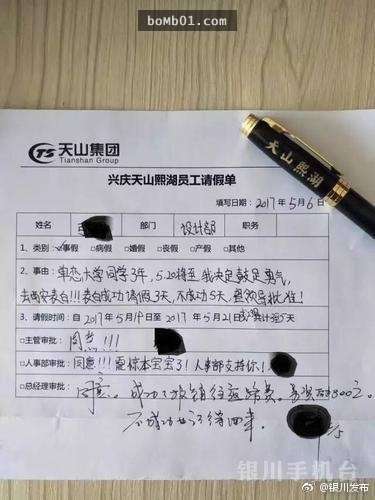 boMb01.com
天山集团
Tianshan Group
天山熙湖
兴庆天山熙湖员工请假单
填写日期：2017年5月6日
姓名
部门
设计部
职务
1、类别：☑事假 □病假 □婚假 □丧假 □产假 □其他
2、事由：单恋大学同学3年，5.20将至，我决定鼓足勇气，
去南京表白!!!表白成功请假3天，不成功5天，恳领导批准！
3、请假时间：自2017年5月19日至2017年5月21日 共计 5天
□主管审批：同意!!!
□人事部审批：同意!!! 震惊本宝宝了！人事部支持你！
□总经理审批：同意。成功了报销往返路费，
不成功也记得回来。
银川手机台
@银川发布